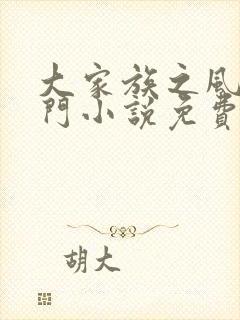 大家族之風
門小說免費
胡大